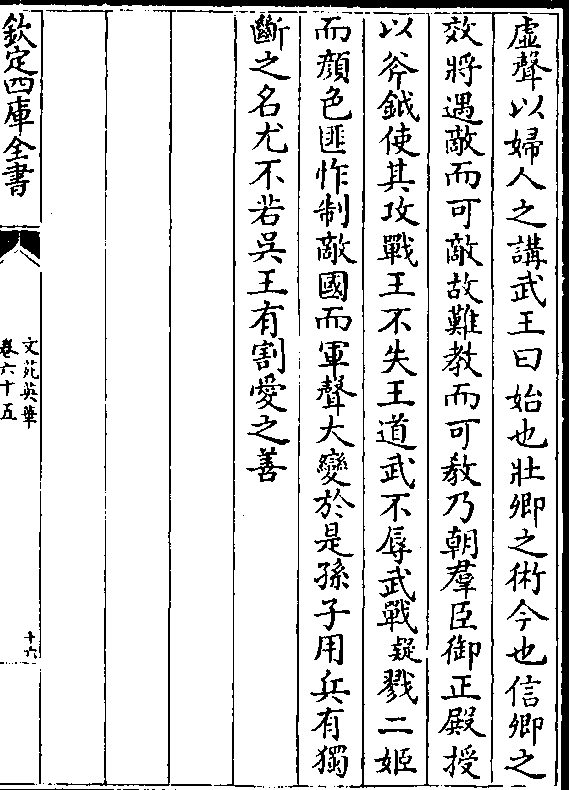 虛聲以婦人之講武王曰始也壯卿之術今也信卿之
效將遇敵而可敵故難教而可教乃朝羣臣御正殿授
以斧鉞使其攻戰王不失王道武不辱武戰疑戮二姬
而顔色匪怍制敵國而軍聲大變於是孫子用兵有獨
斷之名尤不若吳王有割愛之善
欽定四庫全書
文苑英華
卷六十五
十六